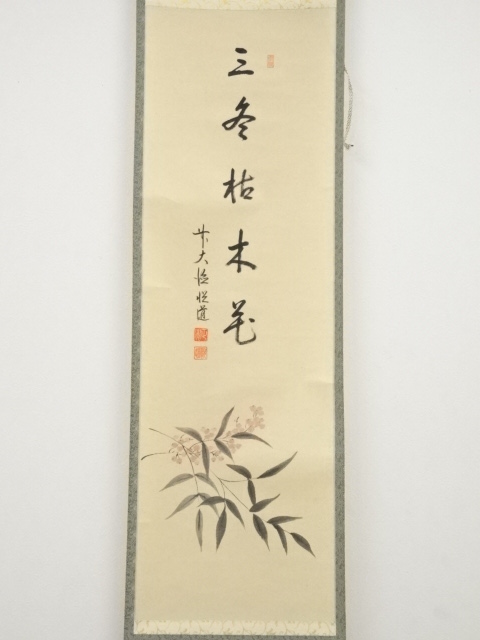 三冬枯木花
前大徳悦道